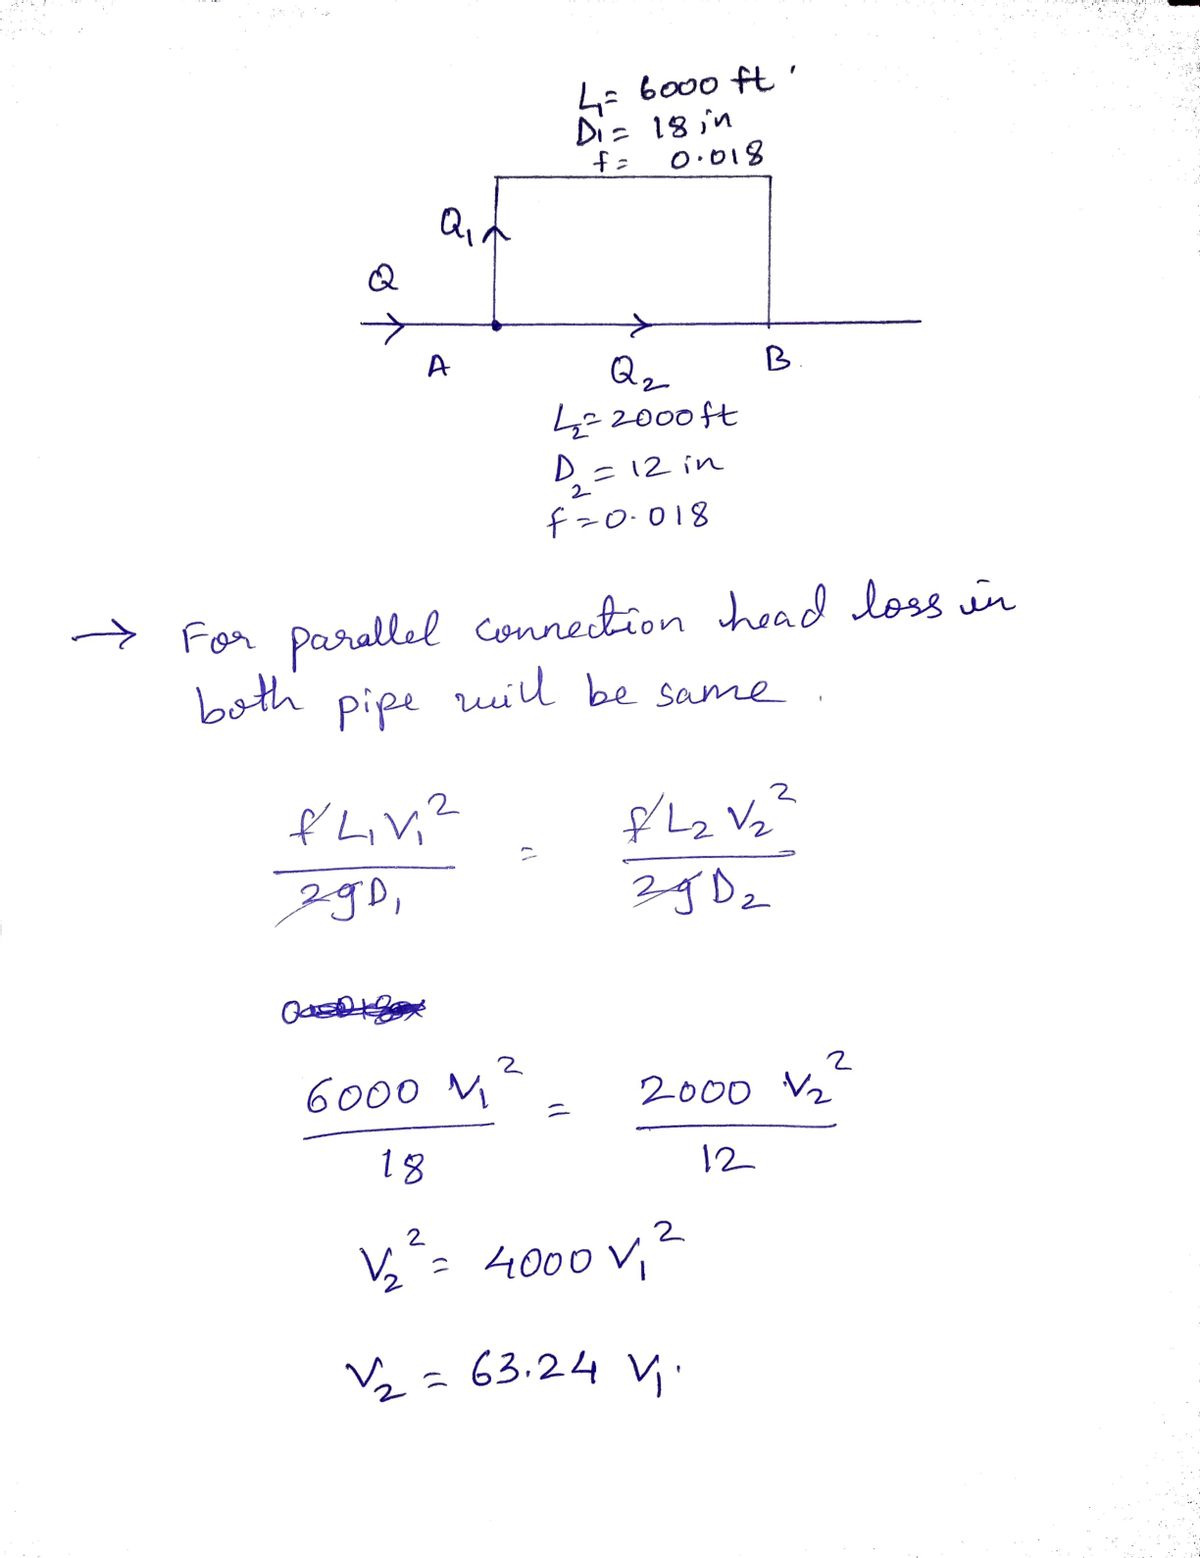 L₁= 6000 ft
D₁= 18 in
f= 0.018
Q₁
Q
A
Q₂
B.
L₂=2000ft
D₂=12 in
f=0.018
→ For parallel connection head loss in
both pipe will be same.
fL₁V₁²/2gD₁ = fL₂V₂²/2gD₂
6000 V₁²/18 = 2000 V₂²/12
V₂² = 4000 V₁²
V₂ = 63.24 V₁.